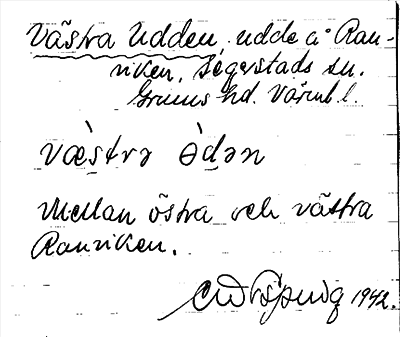 Västra Udden, udde å Ran-
viken, Segerstads sn.
Grums hd. Värml l.
væ̀strə ə̀dən
Mellan östra och västra
Ranviken.
1942.